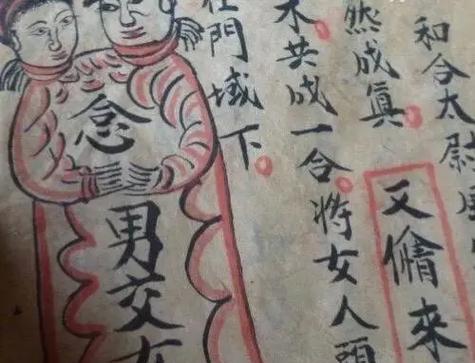 和合太尉
又脩來
然成真
木共成一合将女人頭
在門域下
念
男交女